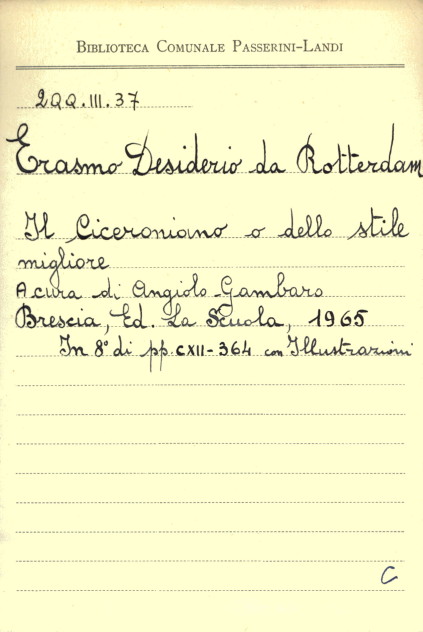 Biblioteca Comunale Passerini-Landi
2QQ.III.37
Erasmo Desiderio da Rotterdam
Il Ciceroniano o dello stile
migliore
A cura di Angiolo Gambaro
Brescia, Ed. La Scuola, 1965
In 8° di pp. CXII-364 con Illustrazioni
C